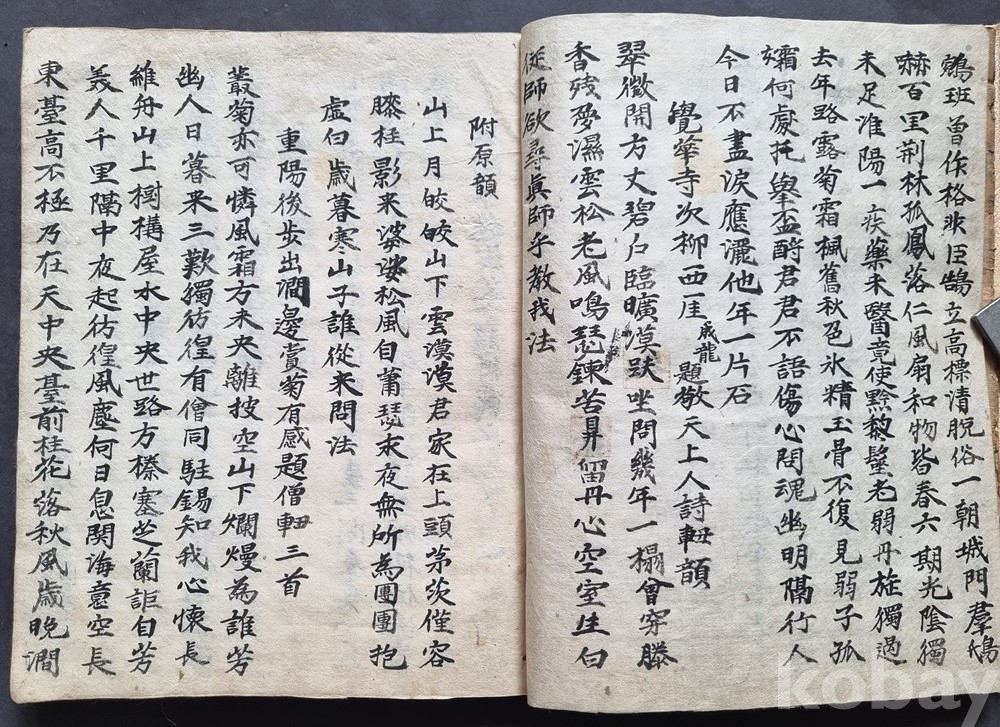 鵷班曾作格非臣鵠立高標清脫俗一朝城門羣鴟
嚇百里荆林孤鳳落仁風扇和物皆春六期光陰獨
未足淮陽一疾藥未醫竟使黔黎髮老弱丹旌獨過
去年路露菊霜楓舊秋色氷精玉骨不復見弱子孤
孀何處托擧盃酹君君不語傷心問魂幽明隔行人
今日不盡淚應灑他年一片石
覺華寺次柳西厓成龍題敬天上人詩軸韻
翠微開方丈碧戶臨曠漠趺坐問幾年一榻曾穿膝
香殘夢濕雲松老風鳴瑟鍊苦昇留丹心空室生白
從師欲尋眞師乎敎我法
附原韻
山上月皎皎山下雲漠漠君家在上頭茅茨僅容
膝桂影來婆娑松風自蕭瑟永夜無所爲團團抱
虛白歲暮寒山子誰從來問法
重陽後步出澗邊賞菊有感題僧軸三首
叢菊亦可憐風霜方未央離披空山下爛熳爲誰芳
幽人日暮來三歎獨彷徨有僧同駐錫知我心懷長
維舟山上樹構屋水中央世路方榛塞芝蘭詎自芳
義人千里隔中夜起彷徨風塵何日息關海意空長
東臺高不極乃在天中央臺前桂花落秋風歲晚澗
kobay